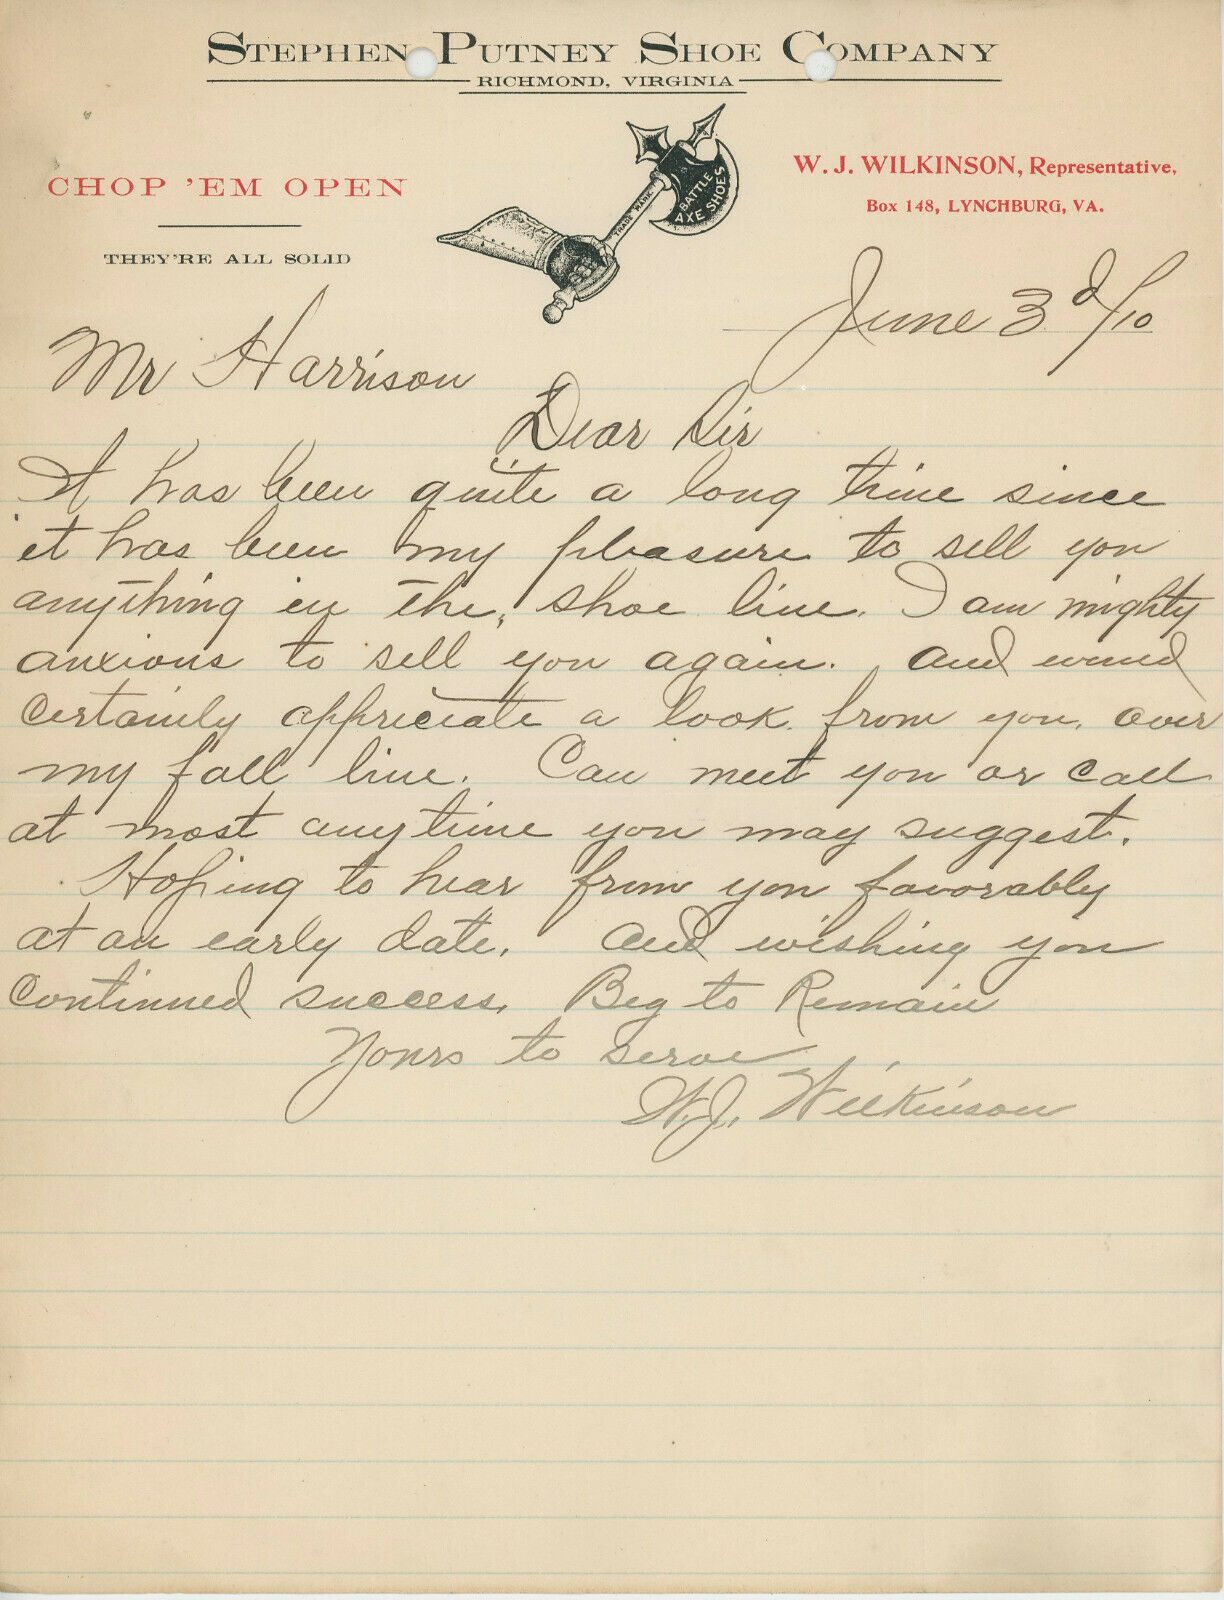 STEPHEN PUTNEY SHOE COMPANY
RICHMOND, VIRGINIA
CHOP 'EM OPEN
THEY'RE ALL SOLID
TRADE MARK
BATTLE
AXE SHOES
W. J. WILKINSON, Representative,
Box 148, LYNCHBURG, VA.
June 3d/10
Mr Harrison
Dear Sir
It has been quite a long time since
it has been my pleasure to sell you
anything in the, shoe line. I am mighty
anxious to sell you again. and would
certainly appreciate a look from you, over
my fall line. Can meet you or call
at most anytime you may suggest.
Hoping to hear from you favorably
at an early date. and wishing you
continued success. Beg to Remain
Yours to serve
W.J. Wilkinson